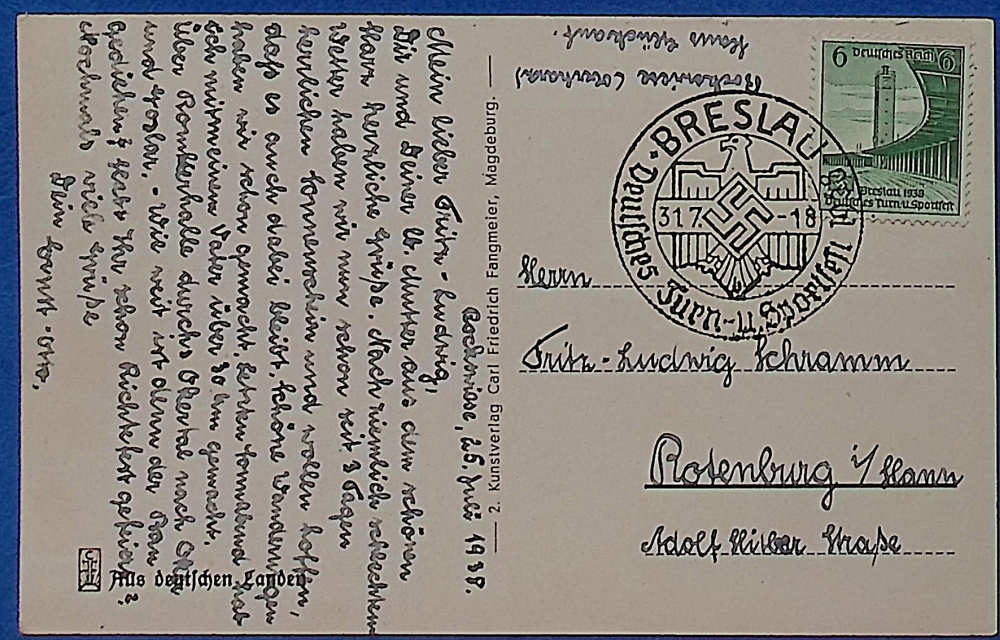 Bockswiese, 26. Juli 1938.
Mein lieber Fritz-Ludwig,
Dir und Deiner lb. Mutter aus dem schönen
Harz herzliche Grüße. Nach ziemlich schlechtem
Wetter haben wir nun schon seit 3 Tagen
herrlichen Sonnenschein und wollen hoffen,
daß es auch dabei bleibt. Schöne Wanderungen
haben wir schon gemacht. Letzten Sonnabend hab
ich mit meinem Vater über 30 km gemacht.
Über Romkerhalle durchs Okertal nach Oker
und Goslar. - Wie weit ist denn der Bau
gediehen? Habt Ihr schon Richtefest gefeiert?
Nochmals viele Grüße
Dein Ernst-Otto.
Aus deutschen Landen
2. Kunstverlag Carl Friedrich Fangmeier, Magdeburg.
Bockswiese (Oberharz)
Haus Glückauf.
6 Deutsches Reich 6
Breslau 1938
Deutsches Turn u. Sportfest
BRESLAU
31 7. -18
Deutsches Turn- u. Sportfest
Herrn
Fritz-Ludwig Schramm
Rotenburg i/Hann
Adolf Hitler Straße